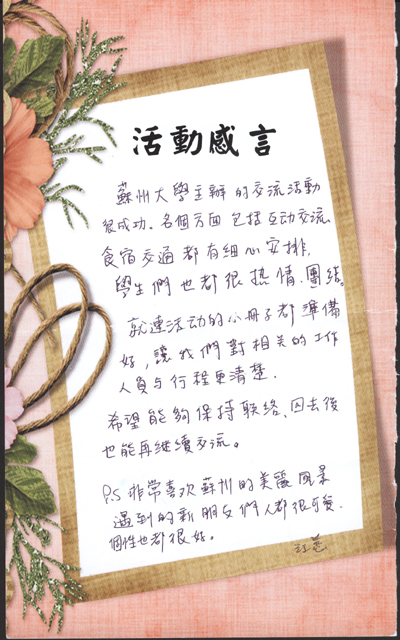 活動感言
蘇州大學主辦的交流活動
很成功. 各個方面包括互动交流.
食宿交通都有細心安排.
學生們也都很热情、團结。
就連活动的小册子都準備
好, 讓我們對相关的工作
人員与行程更清楚.
希望能夠保持联络、回去後
也能再继續交流。
P.S 非常喜欢蘇州的美麗風景
遇到的新朋友們人都很可爱.
個性也都很好。